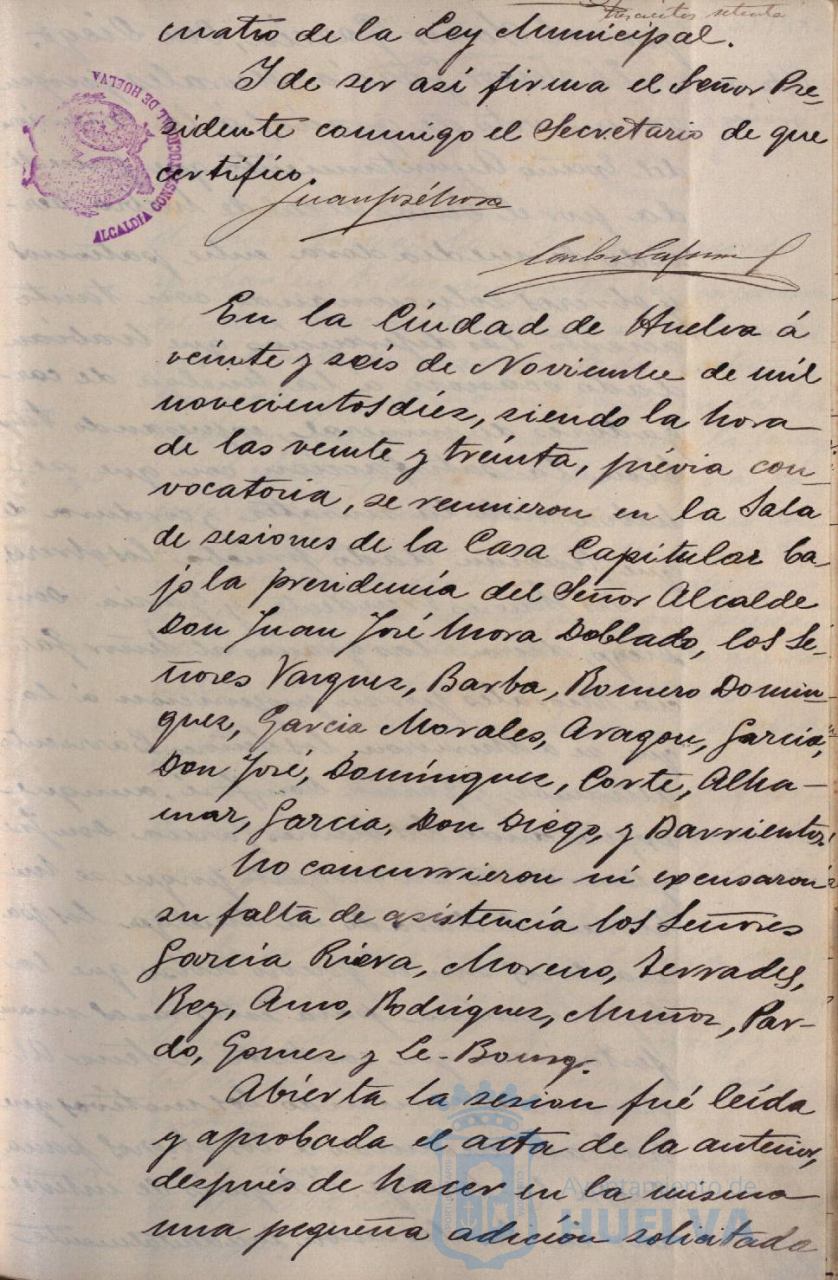 trescientos setenta
cuatro de la Ley Municipal.
Y de ser así firma el Señor Pre-
sidente conmigo el Secretario de que
certifico.
ALCALDIA CONSTITUCIONAL DE HUELVA
Juan José Mora
En la Ciudad de Huelva á
veinte y seis de Noviembre de mil
novecientos diez, siendo la hora
de las veinte y treinta, prévia con
vocatoria, se reunieron en la Sala
de sesiones de la Casa Capitular ba
jo la presidencia del Señor Alcalde
Don Juan José Mora Doblado, los Se-
ñores Vazquez, Barba, Romero Domin-
guez, Garcia Morales, Aragon, Garcia,
Don José, Domínguez, Corte, Alha-
mar, Garcia, Don Diego, y Barrientos.
No concurrieron ni excusaron
su falta de asistencia los Señores
García Riera, Moreno, Terrades,
Rey, Amo, Rodríguez, Muñoz, Par-
do, Gomez y Le-Bourg.
Abierta la sesion fué leída
y aprobada el acta de la anterior,
después de hacer en la misma
una pequeña adición solicitada
Ayuntamiento de
HUELVA